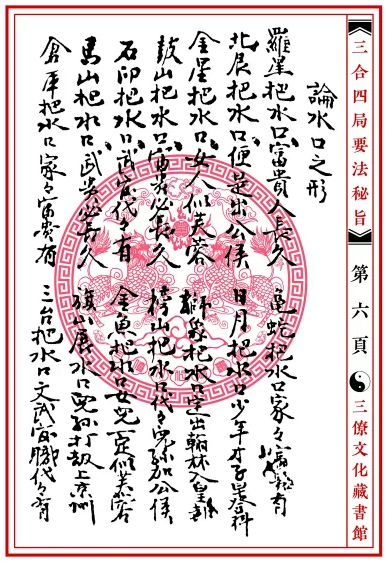 三合四局要法秘旨
第六頁
三僚文化藏書館
論水口之形
羅星把水口富貴人長久 龜蛇把水口家々有
北辰把水口便是出公侯 日月把水口少年才子登科
金星把水口女人似芙蓉 獅象把水口定出翰林入皇都
鼓山把水口富貴必長久 榜山把水口代々加公侯
石印把水口武官代々有 金魚把水口女兒一定似芙蓉
馬山把水口武貴必長久 旗山展水口兒孫打鼓上京州
倉庫把水口家々富貴有 三台把水口文武官職代々有